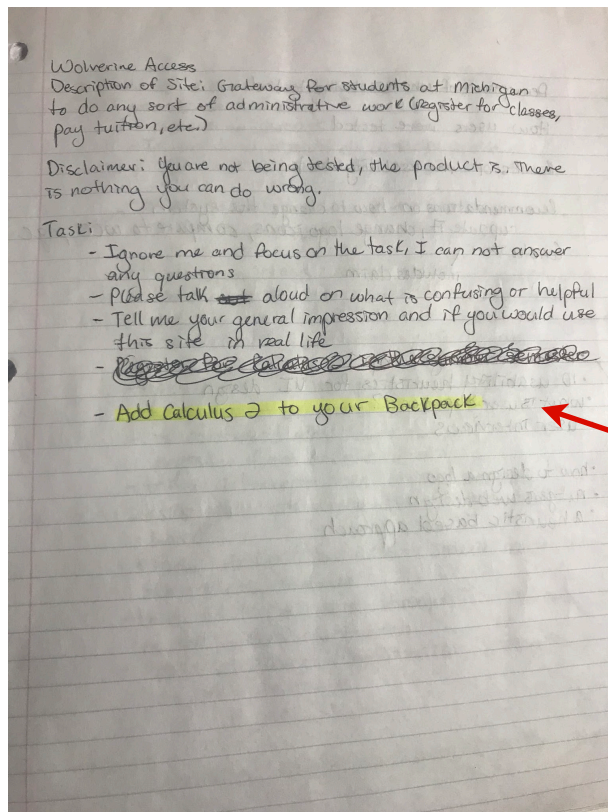 Wolverine Access
Description of Site: Gateway for students at Michigan
to do any sort of administrative work (register for classes,
pay tuition, etc.)
Disclaimer: You are not being tested, the product is. There
is nothing you can do wrong.
Task:
- Ignore me and focus on the task, I can not answer
any questions
- Please talk out aloud on what is confusing or helpful
- Tell me your general impression and if you would use
this site in real life
-
- Add Calculus 2 to your Backpack